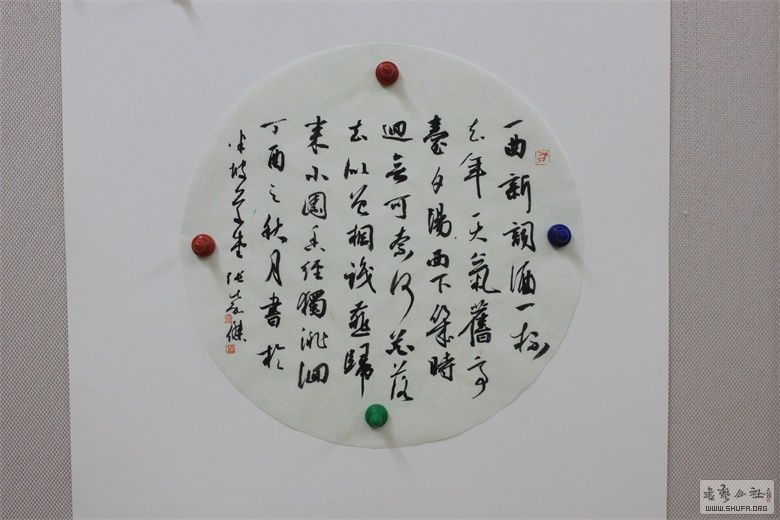 一曲新詞酒一杯
去年天氣舊亭
臺夕陽西下幾時
迴無可奈何花落
去似曾相識燕歸
来小園香徑獨徘徊
丁酉之秋月書於
半坡 堂 張 傑
書藝公社
WWW.SHUFA.ORG